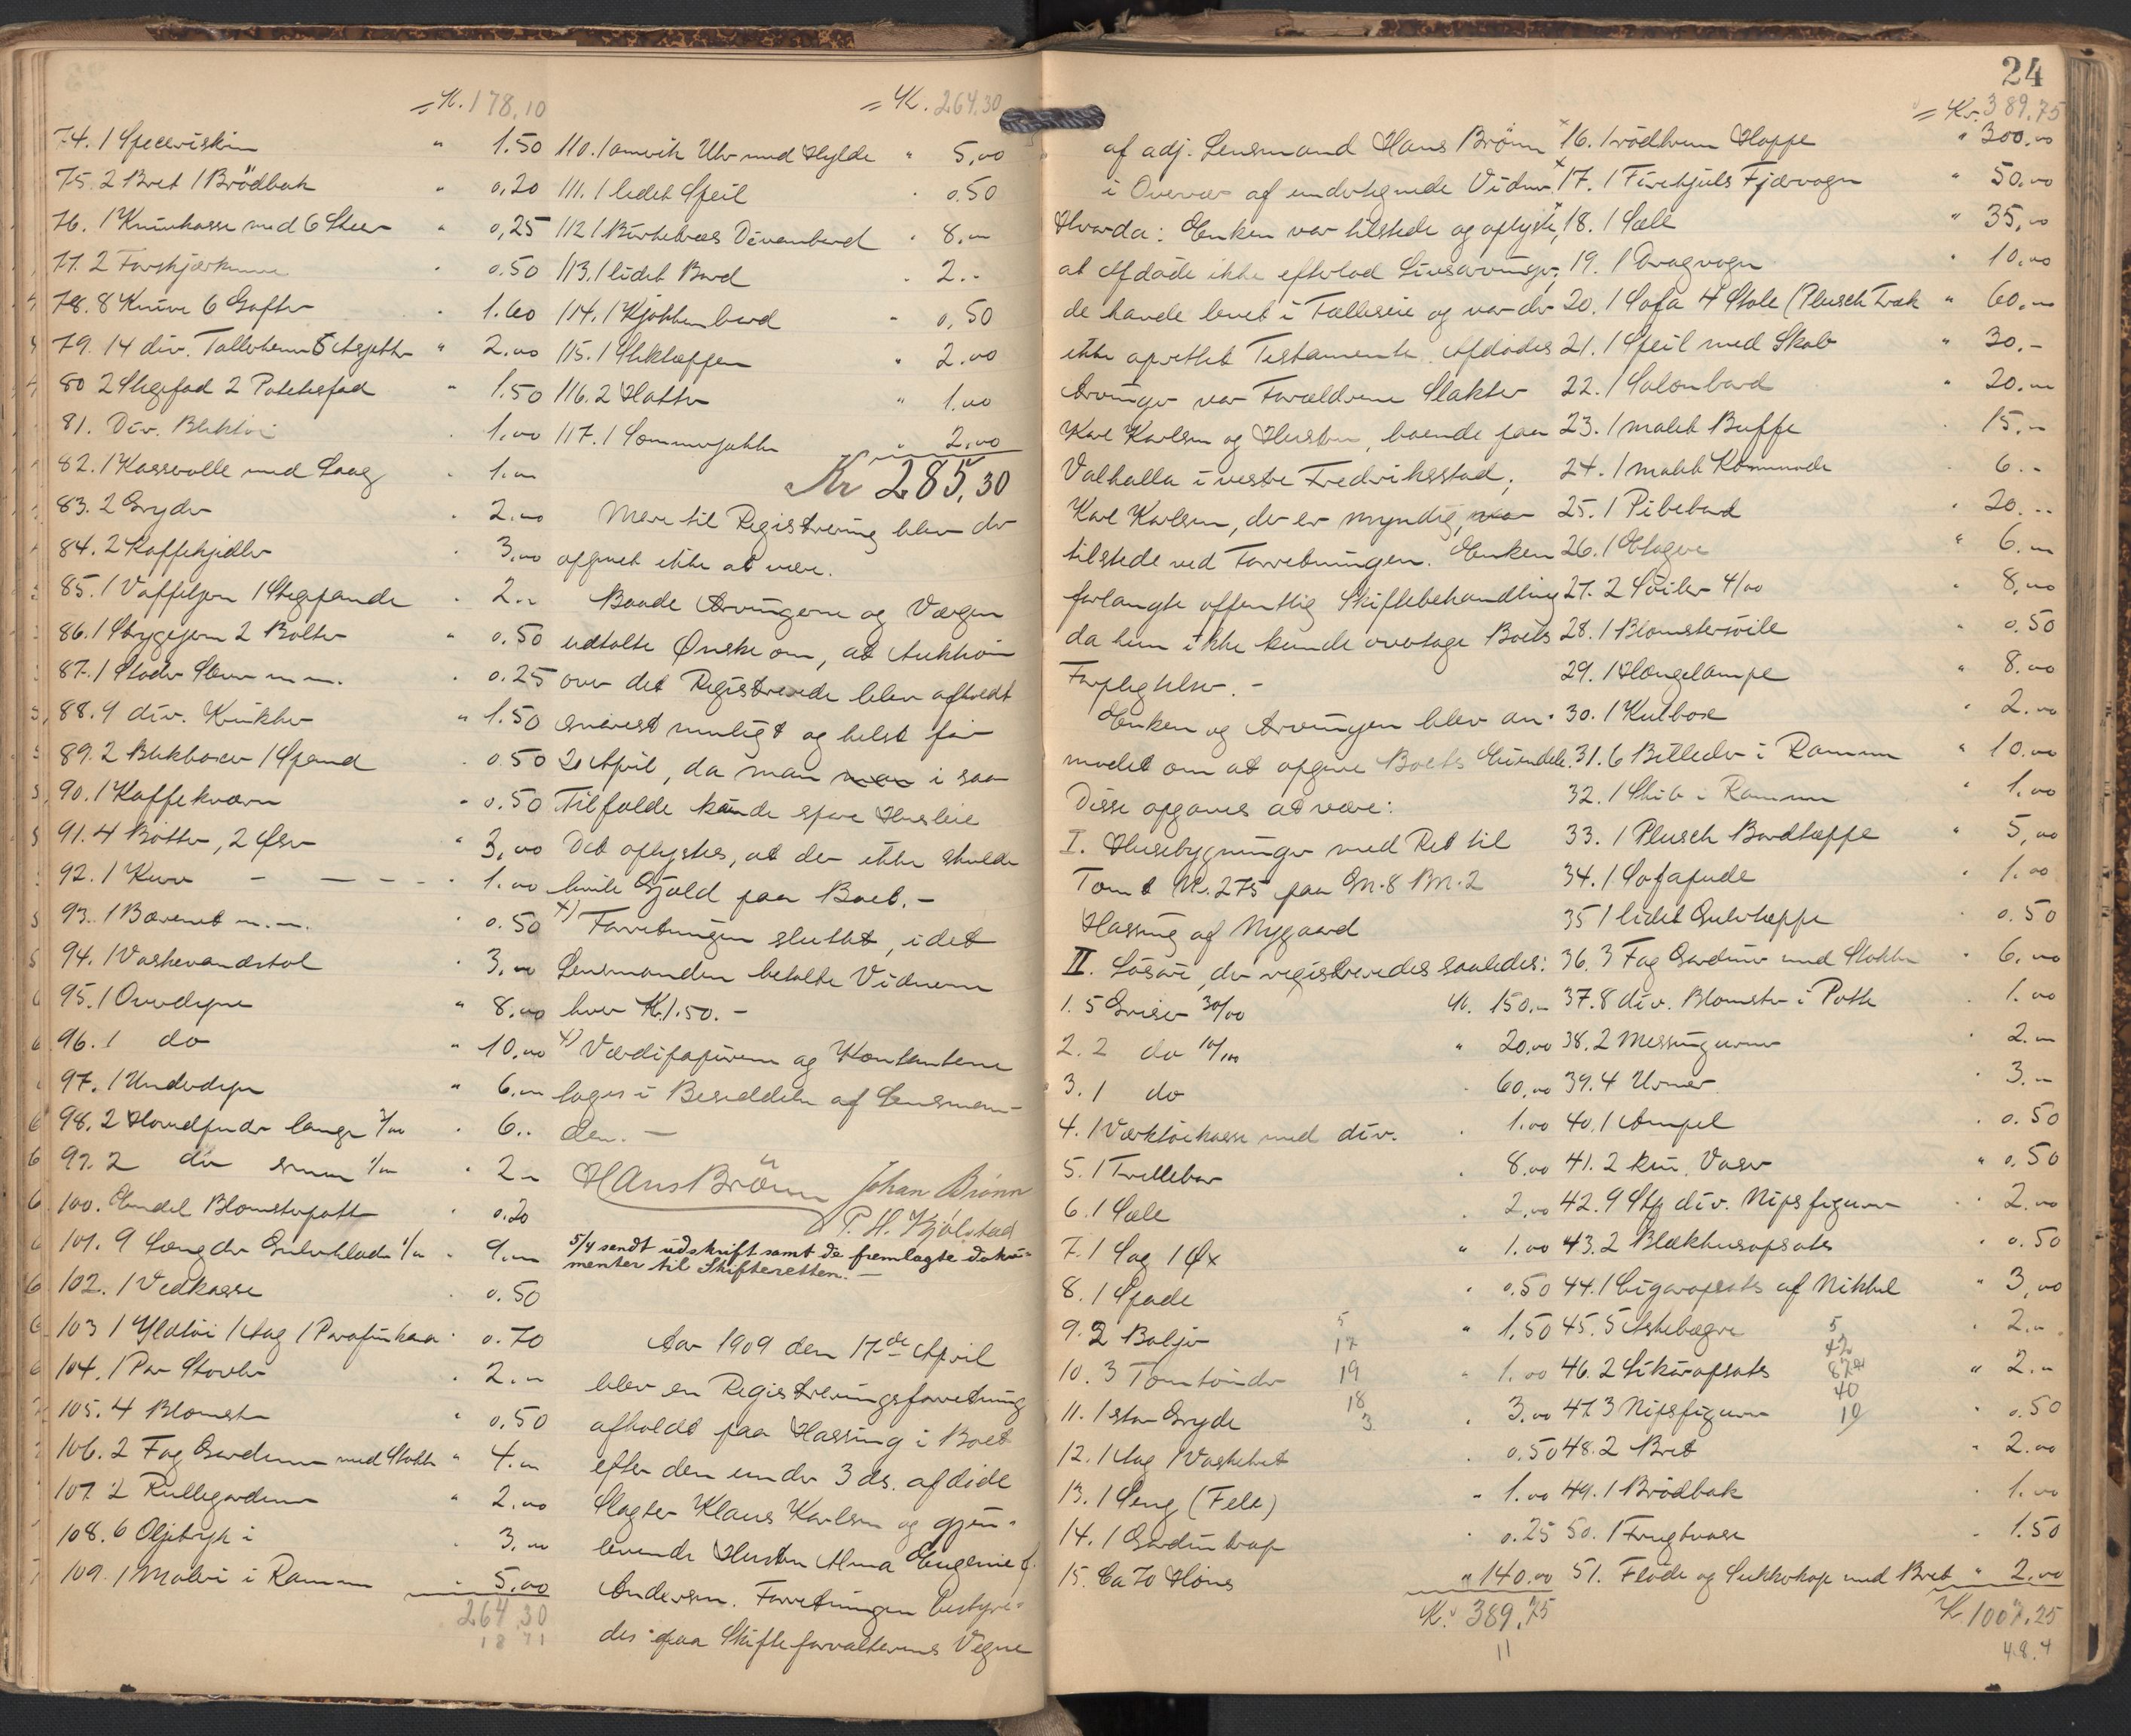 = K. 178,10
74. 1 Speceriskrin " 1.50
75. 2 Bret 1 Brödbak " 0,20
76. 1 Knivkasse med 6 Skeer " 0,25
77. 2 " 0.50
78. 8 Knive 6 Gafler " 1.60
79. 14 div. Tallerkener 5 Assietter " 2.00
80 2 Stegefad 2 Potetesfad " 1.50
81. Div. Bliktöi " 1,00
82. 1 Kasserolle med Laag " 1.00
83. 2 Gryder " 2.00
84. 2 Kaffekjedler " 3,00
85. 1 Vaffeljern 1 Stegepande " 2..
86. 1 Strygejern 2 Bolter " 0.50
87. 1 m.m. " 0.25
88. 9 div. Krukker " 1.50
89. 2 Blikboxer 1 Spand " 0.50
90. 1 Kaffekværn " 0.50
91. 4 Bötter, 2 Öser " 3,00
92. 1 Kurv - - - - " 1.00
93. 1 Bærenet m.m. " 0.50
94. 1 Vaskevandstol " 3,00
95. 1 Overdyne " 8.00
96. 1 do " 10,00
97. 1 Underdyne " 6.00
98. 2 Hovedpuder lange 3/00 " 6..
99. 2 do smaa 1/00 " 2..
100. Endel Blomsterpotter " 0.20
101. 9 Længder Gulvklæde 1/00 " 9.00
102. 1 Vedkasse " 0.50
103 1 Ildtöi 1 Sag 1 Parafinkan " 0.70
104. 1 Par Stövler " 2..
105. 4 Blomster " 0.50
106. 2 Fag Gardiner med Stokker " 4.00
107. 2 Rullegardiner " 2.00
108. 6 Oljetryk i " 3.00
109. 1 Maleri i Ramme " 5.00
264,30
18 71
= Kr. 264,30
110. 1 amerik Uhr med Hylde " 5,00
111. 1 lidet Speil " 0.50
112 1 Birketræs Divanbord " 8.00
113. 1 lidet Bord " 2..
114. 1 Kjökkenbord " 0,50
115. 1 Stiktæppe " 2.00
116. 2 Hatter " 1.00
117. 1 Sommerjakke " 2,00
Kr 285,30
Mere til Registrering blev der
opgivet ikke at være.
Baade Arvingerne og Værgen
udtalte Ønske om, at Auktion
over det Registrerede blev afholdt
snarest muligt og helst för
20 April, da man man i saa
Tilfælde kunde spare Husleie
Det oplystes, at der ikke skulde
hvile Gjæld paa Boet. -
x) Forretningen sluttet, idet
Lensmanden betalte Vidnerne
hver K 1.50. -
x) Værdipapirerne og Kontantene
toges i Besiddelse af Lensman-
den. -
Hans Brönn Johan Brönn
P. H. Kjölstad
5/4 sendt udskrift samt de fremlagte doku-
menter til Skifteretten. -
Aar 1909 den 17de April
blev en Registreringsforretning
afholdt paa Hassing i Boet
efter den under 3 ds. afdöde
Slagter Klaus Karlsen og gjen-
levende Hustru Alma Eugenie f.
Andersen. Forretningen bestyre-
des paa Skifteforvalterens Vegne
24
af adj. Lensmand Hans Brönn
i Overvær af undertegnede Vidner
Hvorda: Enken var tilstede og oplyste,
at Afdöde ikke efterlod Livsarvinger,
de havde levet i Fælleseie og var der
ikke oprettet Testamente. Afdödes
Arvinger var Forældrene Slakter
Karl Karlsen og Hustru, boende paa
Valhalla i vestre Fredriksstad,
Karl Karlsen, der er myndig, var
tilstede ved Forretningen. Enken
forlangte offentlig Skiftebehandling
da hun ikke kunde overtage Boets
Forpligtelser. -
Enken og Arvingen blev an-
modet om at opgive Boets Eiendele.
Disse opgaves at være:
I. Husebygninger med Ret til
Tomt No. 275 paa Gn. 8 Bn. 2
Hassing af Nygaard
II. Lösöre, der registreredes saaledes:
1. 5 Griser 30/00 K. 150,-
2. 2 do 10/00 " 20,00
3. 1 do " 60,00
4. 1 Værktöikasse med div. " 1.00
5. 1 Trillebör " 8.00
6. 1 Sæle " 2,00
7. 1 Sag 1 Øx " 1.00
8. 1 Spade " 0.50
9. 2 Baljer 5 " 1,50
17
10. 3 Tomtönder 19 " 1.00
18
11. 1 stor Gryde 3 " 3.00
12. 1 Sag 1 Vaskebret " 0.50
13. 1 Seng (Fele) " 1.00
14. 1 Gardintrap " 0.25
15. Ca 70 Höns " 140.00
Kr. 389,75
11
= Kr. 389,75
x 16. 1 rödbrun Hoppe " 300,00
x 17. 1 Firehjuls Fjærvogn " 50.00
x 18. 1 Sæle " 35,00
19. 1 Dragvogn " 10.00
20. 1 Sofa 4 Stole (Plusch Træk " 60,00
21. 1 Speil med Skab " 30.-
22. 1 Salonbord " 20.00
23. 1 malet Buffe " 15.-
24. 1 malet Kommode " 6.-
25. 1 Pibebord " 20...
26. 1 Etagere " 6.00
27. 2 Söiler 4/00 " 8,00
28. 1 Blomstersöile " 0.50
29. 1 Hængelampe " 8.00
30. 1 Kulbox " 2.00
31. 6 Billeder i Rammer " 10.00
32. 1 Skib i Ramme " 1.00
33. 1 Plusch Bordtæppe " 5,00
34. 1 Sofapude " 1.00
35 1 lidet Gulvtæppe " 0.50
36. 3 Fag Gardiner med Stokker " 6.00
37. 8 div. Blomster i Potte " 1.00
38. 2 Messingurner " 2.00
39. 4 Urner " 3.-
40. 1 Ampel " 0.50
41. 2 Vaser " 0,50
42. 9 Stk div. Nipsfigurer " 2.00
43. 2 Blækhusopsats " 0.50
44. 1 Cigaropsats af Nikkel " 3,00
45. 5 Askebægre 5 " 2..
42
46. 2 Liköropsats 87 " 2..
40
47. 3 Nipsfigurer 19 " 0.50
48. 2 Bret " 2.00
49. 1 Brödbak " 1.00
50. 1 Frugtvase " 1.50
51. Flöde og Sukkerkop med Bret " 2.00
K. 1007.25
48.4